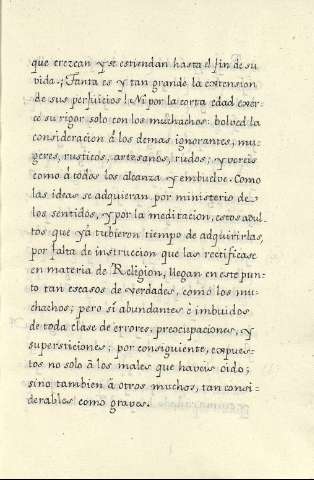 que crezcan y se estiendan hasta el fin de su
vida. ¡Tanta es y tan grande la extension
de sus perjuicios! Ni por la corta edad exer-
ce su rigor solo con los muchachos: bolved la
consideracion á los demas ignorantes, mu-
geres, rusticos, artesanos, rudos; y vereis
como á todos los alcanza y embuelve. Como
las ideas se adquieran por ministerio de
los sentidos, y por la meditacion, estos adul-
tos que yá tubieron tiempo de adquirirlas,
por falta de instruccion que las rectificase
en materia de Religion, llegan en este pun-
to tan escasos de verdades, como los mu-
chachos; pero sí abundantes e imbuidos
de toda clase de errores, preocupaciones, y
supersticiones; por consiguiente, expues-
tos no solo á los males que haveis oido;
sino tambien á otros muchos, tan consi-
derables como graves.